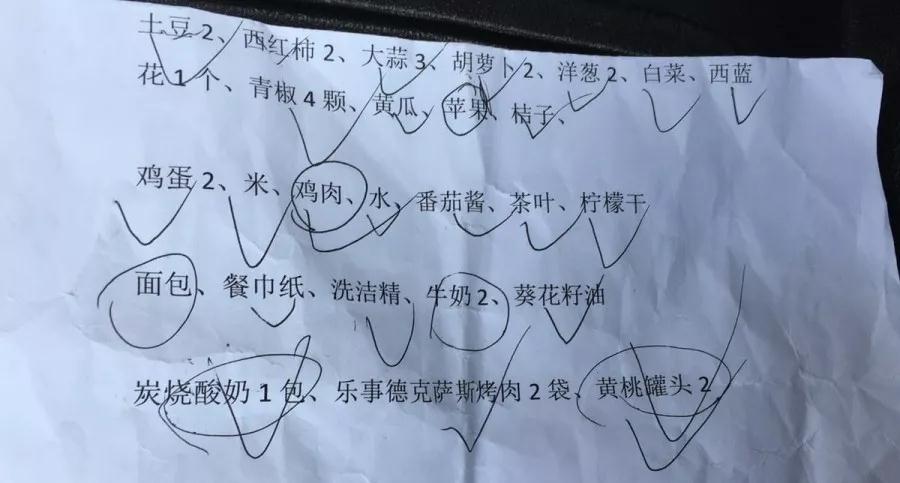 土豆 2、西红柿 2、大蒜 3、胡萝卜 2、洋葱 2、白菜、西蓝
花 1 个、青椒 4 颗、黄瓜、苹果、桔子、
鸡蛋 2、米、鸡肉、水、番茄酱、茶叶、柠檬干
面包、餐巾纸、洗洁精、牛奶 2、葵花籽油
炭烧酸奶 1 包、乐事德克萨斯烤肉 2 袋、黄桃罐头 2